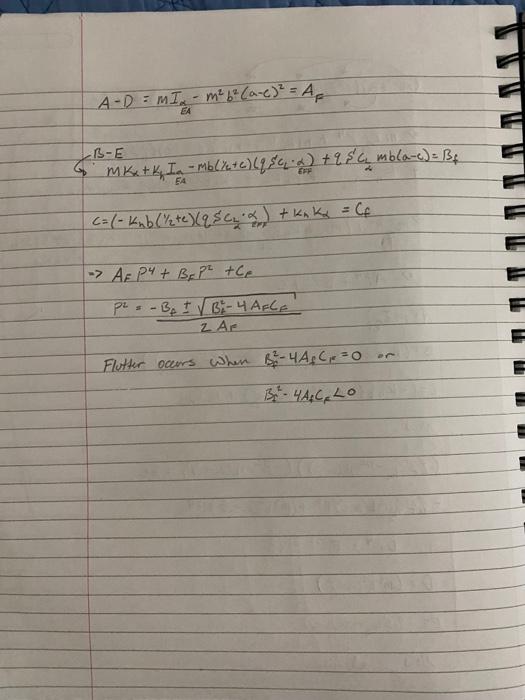 A-D = mI_α_EA - m²b²(a-e)² = A_F
B-E
mKα + K_h I_α_EA - mb(½+e)(qSC_L_α·α_EFF) + qSC_L_α mb(a-e) = B_f
C=(-K_h b(½+e)(qSC_L_α·α_EFF) + K_h Kα = C_f
=> A_F P⁴ + B_F P² + C_F
P² = -B_f ± √(B_f² - 4A_F C_F) / 2A_F
Flutter occurs when B_f² - 4A_f C_F = 0 or
B_f² - 4A_f C_F < 0